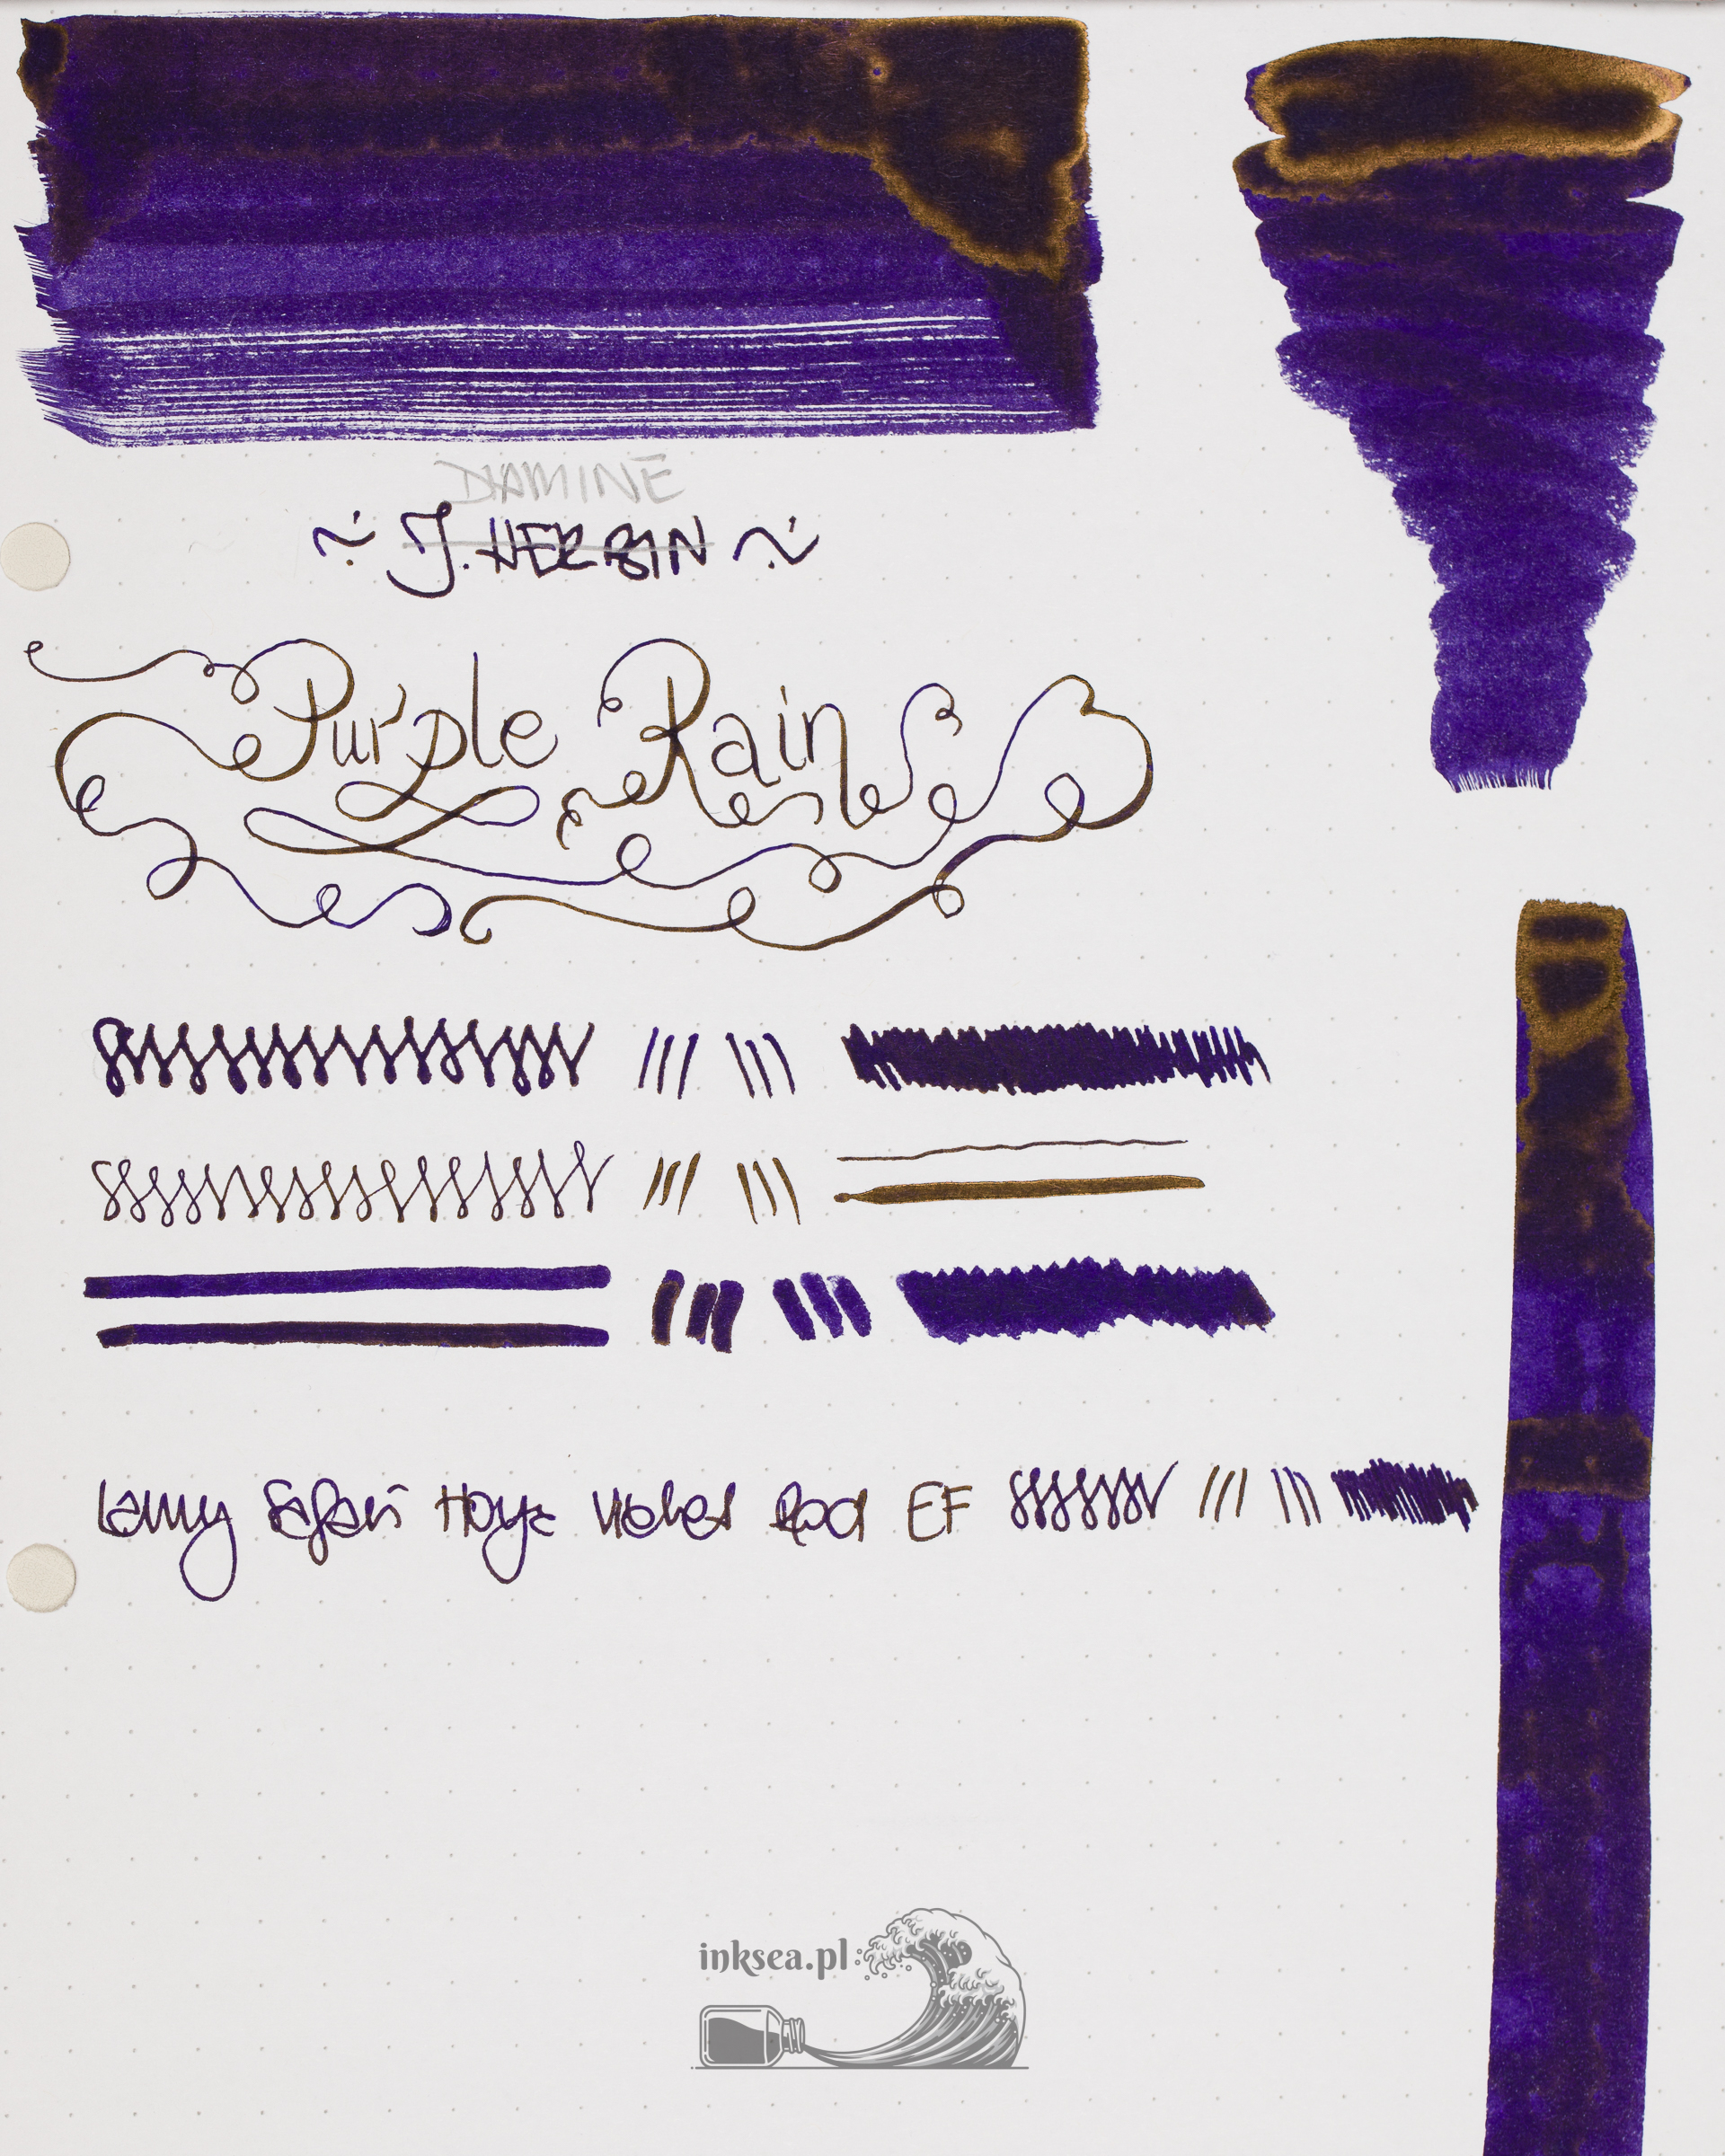 DIAMINE
~ J. HERBIN ~
Purple Rain
Lamy Safari Violet Red EF
inksea.pl